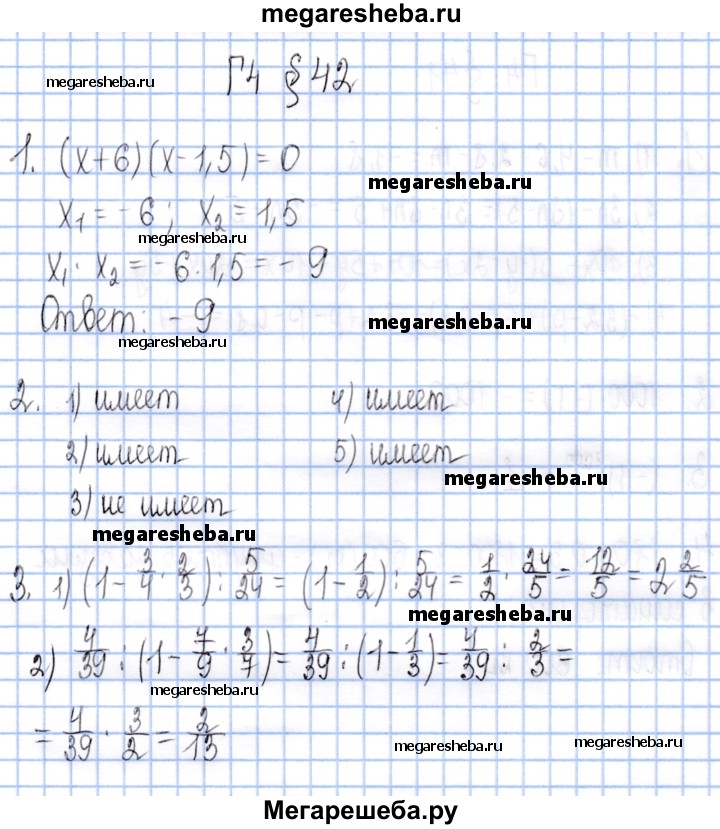 megaresheba.ru
Г4 § 42
megaresheba.ru
1. (x+6)(x-1,5)=0
megaresheba.ru
x₁=-6; x₂=1,5
megaresheba.ru
x₁·x₂=-6·1,5=-9
Ответ: -9
megaresheba.ru
megaresheba.ru
2. 1) имеет 4) имеет
2) имеет 5) имеет
megaresheba.ru
3) не имеет
megaresheba.ru
3. 1) (1-3/4·2/3):5/24=(1-1/2):5/24=1/2·24/5=12/5=2 2/5
megaresheba.ru
2) 4/39:(1-7/9·3/7)=4/39:(1-1/3)=4/39:2/3=
megaresheba.ru
=4/39·3/2=2/13
megaresheba.ru
megaresheba.ru
Мегарешеба.ру